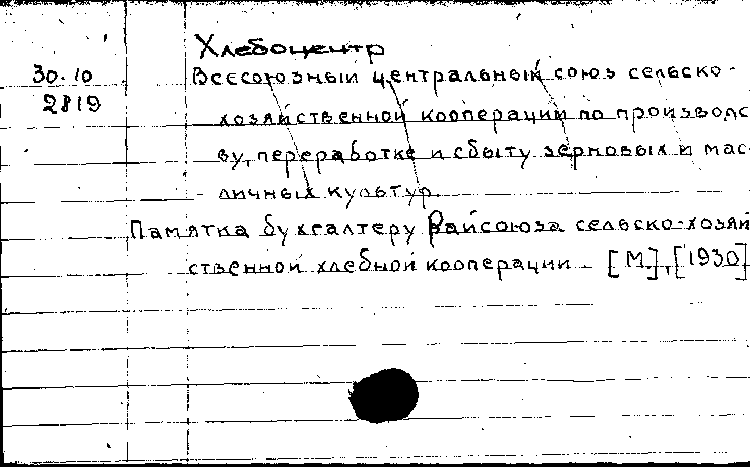 Хлебоцентр
30.10 Всесоюзный центральный союз сельско-
2819 хозяйственной кооперации по производс
ву, переработке и сбыту зерновых и мас
личных культур.
Памятка бухгалтеру Райсоюза сельско-хозяй
ственной хлебной кооперации – [М.], [1930]